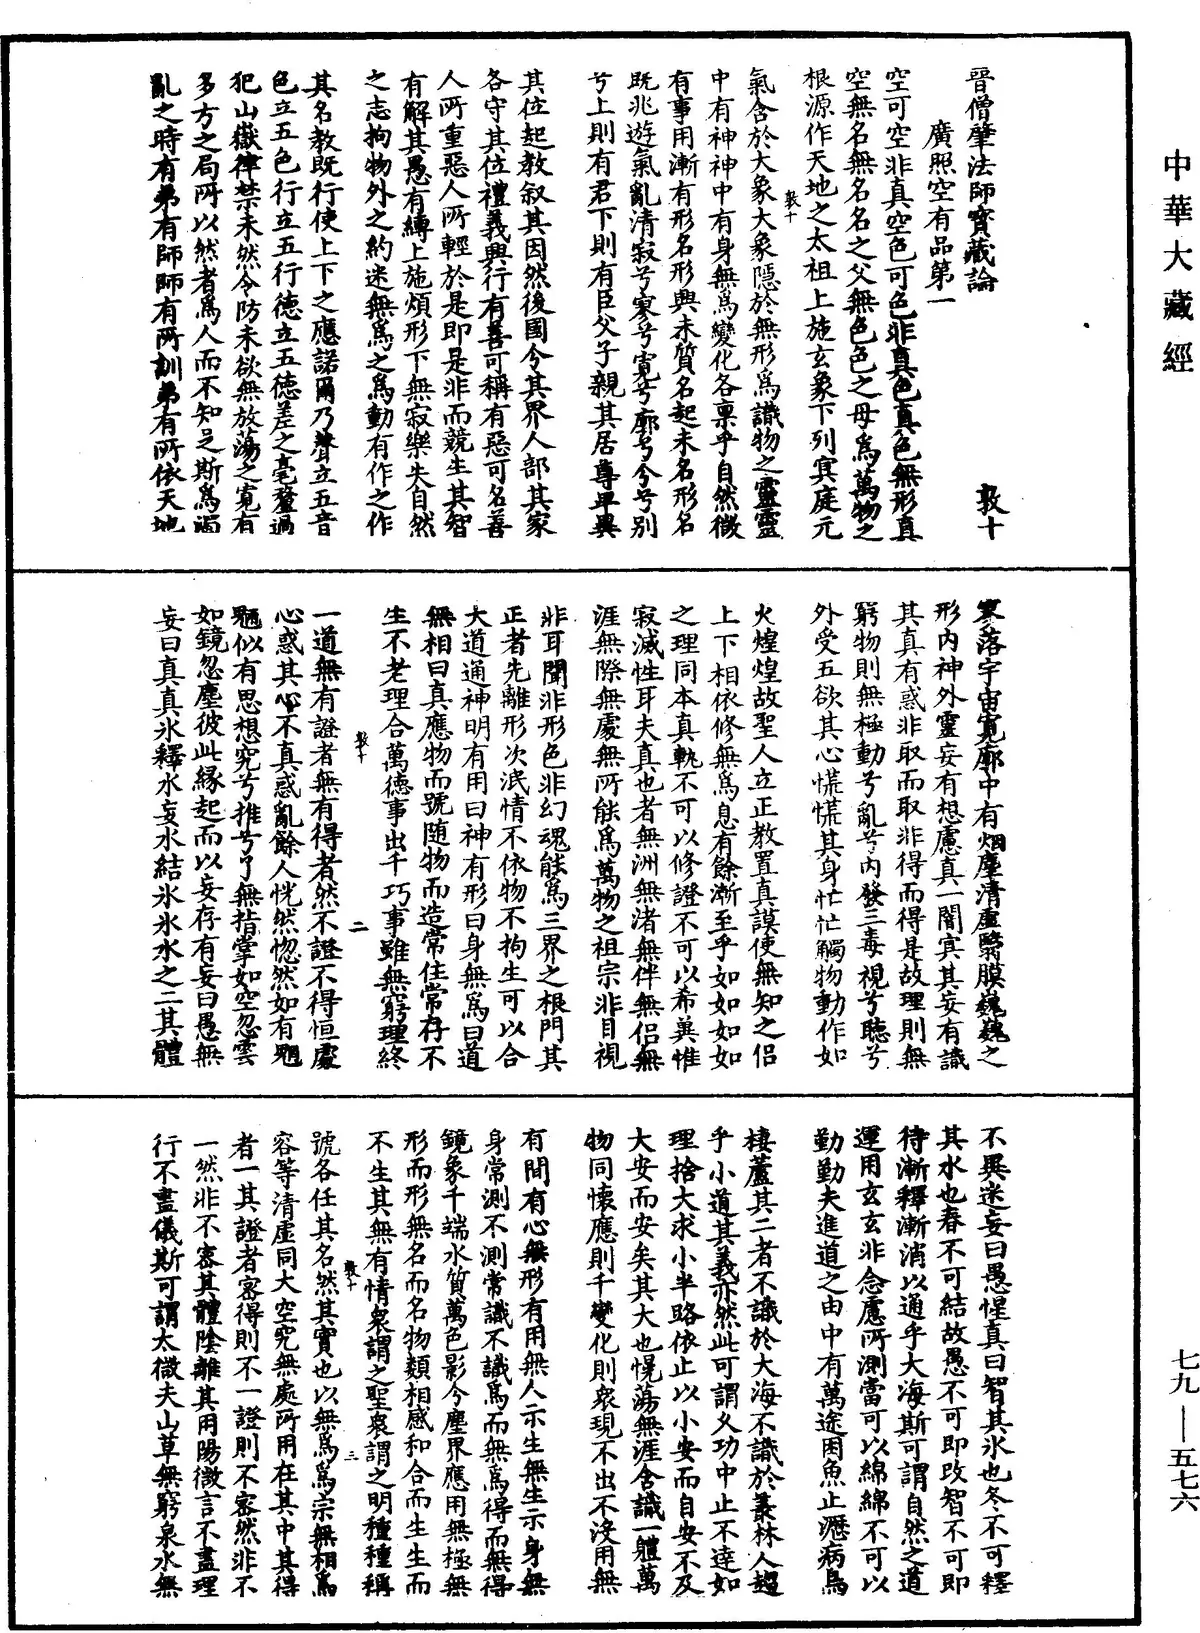 中華大藏經
晉僧肇法師寶藏論
敦十
廣照空有品第一
空可空非真空色可色非真色真色無形真
空無名無名名之父無色色之母爲萬物之
根源作天地之太祖上施玄象下列寘庭元
敦十
氣含於大象大象隱於無形爲識物之靈靈
中有神神中有身無爲變化各稟乎自然微
有事用漸有形名形興未質名起未名形名
既兆遊氣亂清寂兮寥兮寬兮廓兮兮分兮別
兮上則有君下則有臣父子親其居尊卑異
其位起教叙其因然後國令其界人部其家
各守其位禮義興行有善可稱有惡可名善
人所重惡人所輕於是即是非而競生其智
有解其愚有縛上施煩形下無寂樂失自然
之志拘物外之約迷無爲之爲動有作之作
其名教既行使上下之應諾爾乃聲立五音
色立五色行立五行德立五德差之毫釐過
犯山嶽律禁未然令防未欲無放蕩之寬有
多方之局所以然者爲人而不知足斯爲濁
亂之時有弟有師師有所訓弟有所依天地
寥落宇宙寬廓中有烟塵清虛翳膜巍巍之
形内神外靈妄有想慮真一闇寘其妄有識
其真有惑非取而取非得而得是故理則無
窮物則無極動兮亂兮内發三毒視兮聽兮
外受五欲其心慌慌其身忙忙觸物動作如
火煌煌故聖人立正教置真謨使無知之侣
上下相依修無爲息有餘漸至乎如如如如
之理同本真軌不可以修證不可以希冀惟
寂滅性耳夫真也者無洲無渚無伴無侣無
涯無際無處無所能爲萬物之祖宗非目視
非耳聞非形色非幻魂能爲三界之根門其
正者先離形次泯情不依物不拘生可以合
大道通神明有用曰神有形曰身無爲曰道
無相曰真應物而號随物而造常住常存不
生不老理合萬德事出千巧事雖無窮理終
敦十
二
一道無有證者無有得者然不證不得恒處
心惑其心不真惑亂餘人恍然惚然如有魍
魎似有思想究兮推兮了無指掌如空忽雲
如鏡忽塵彼此緣起而以妄存有妄曰愚無
妄曰真真氷釋水妄水結氷氷水之二其體
不異迷妄曰愚惺真曰智其氷也冬不可釋
其水也春不可結故愚不可即改智不可即
待漸釋漸消以通乎大海斯可謂自然之道
運用玄玄非念慮所測當可以綿綿不可以
勤勤夫進道之由中有萬途困魚止瀝病鳥
棲蘆其二者不識於大海不識於叢林人趨
乎小道其義亦然此可謂久功中止不達如
理捨大求小半路依止以小安而自安不及
大安而安矣其大也愰蕩無涯含識一體萬
物同懷應則千變化則衆現不出不沒用無
有間有心無形有用無人示生無生示身無
身常測不測常識不識爲而無爲得而無得
鏡象千端水質萬色影分塵界應用無極無
形而形無名而名物類相感和合而生生而
不生其無有情衆謂之聖衆謂之明種種稱
敦十
三
號各任其名然其實也以無爲爲宗無相爲
容等清虛同大空究無處所用在其中其得
者一其證者密得則不一證則不密然非不
一然非不密其體陰離其用陽微言不盡理
行不盡儀斯可謂太微夫山草無窮泉水無
七九—五七六